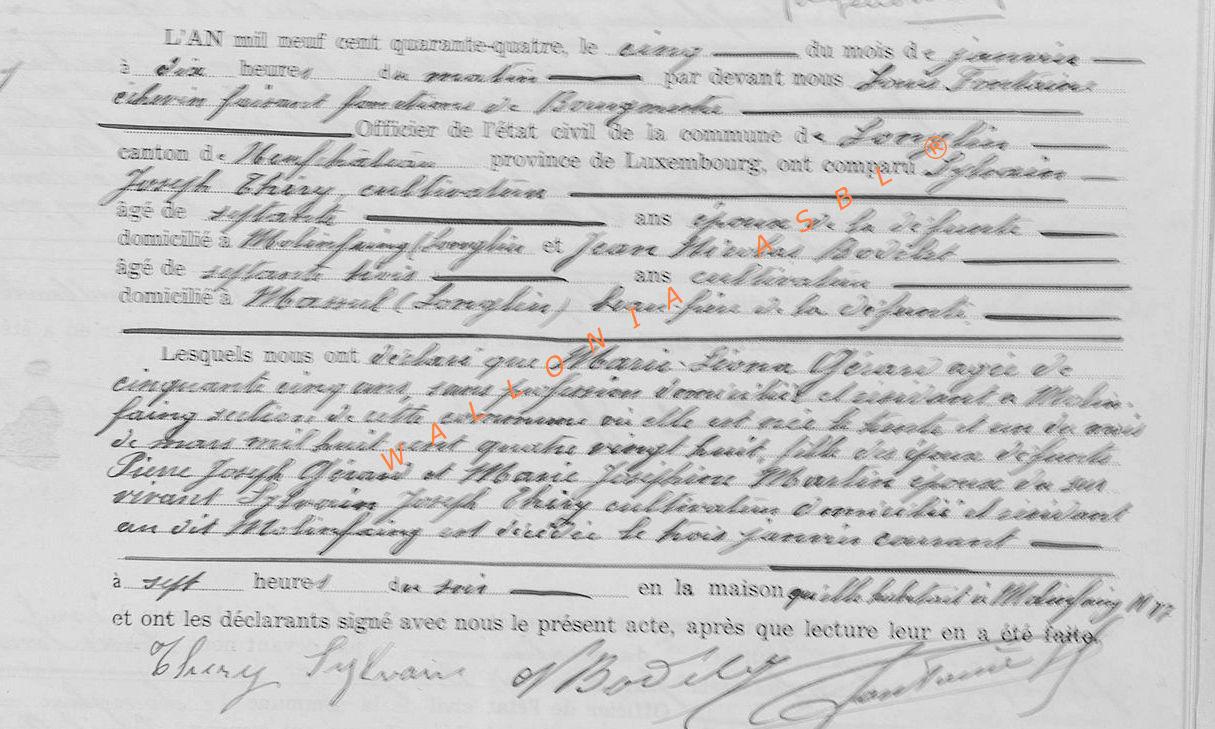 L'AN mil neuf cent quarante-quatre, le cinq du mois de janvier
à dix heures du matin par devant nous Louis Fontaine
échevin faisant fonctions de Bourgmestre
Officier de l'état civil de la commune de Longlier
canton de Neufchâteau province de Luxembourg, ont comparu Sylvain
Joseph Thiry cultivateur
âgé de septante ans époux de la défunte
domicilié à Molinfaing (Longlier et Jean Nicolas Bodelet
âgé de septante trois ans cultivateur
domicilié à Massul (Longlier) beau-frère de la défunte
Lesquels nous ont déclaré que Marie Léona Gérard agée de
cinquante cinq ans, sans profession domiciliée et résidant à Molin-
faing section de cette commune où elle est née le trente et un du mois
de mars mil huit cent quatre vingt huit, fille des époux défunts
Pierre Joseph Gérard et Marie Joséphine Martin épouse du sur
vivant Sylvain Joseph Thiry cultivateur domicilié et résidant
au dit Molinfaing est décédée le trois janvier courant
à sept heures du soir en la maison qu'elle habitait à Molinfaing N°
et ont les déclarants signé avec nous le présent acte, après que lecture leur en a été faite.
Thiry Sylvain N Bodelet Fontaine
WALLONIA ASBL ®